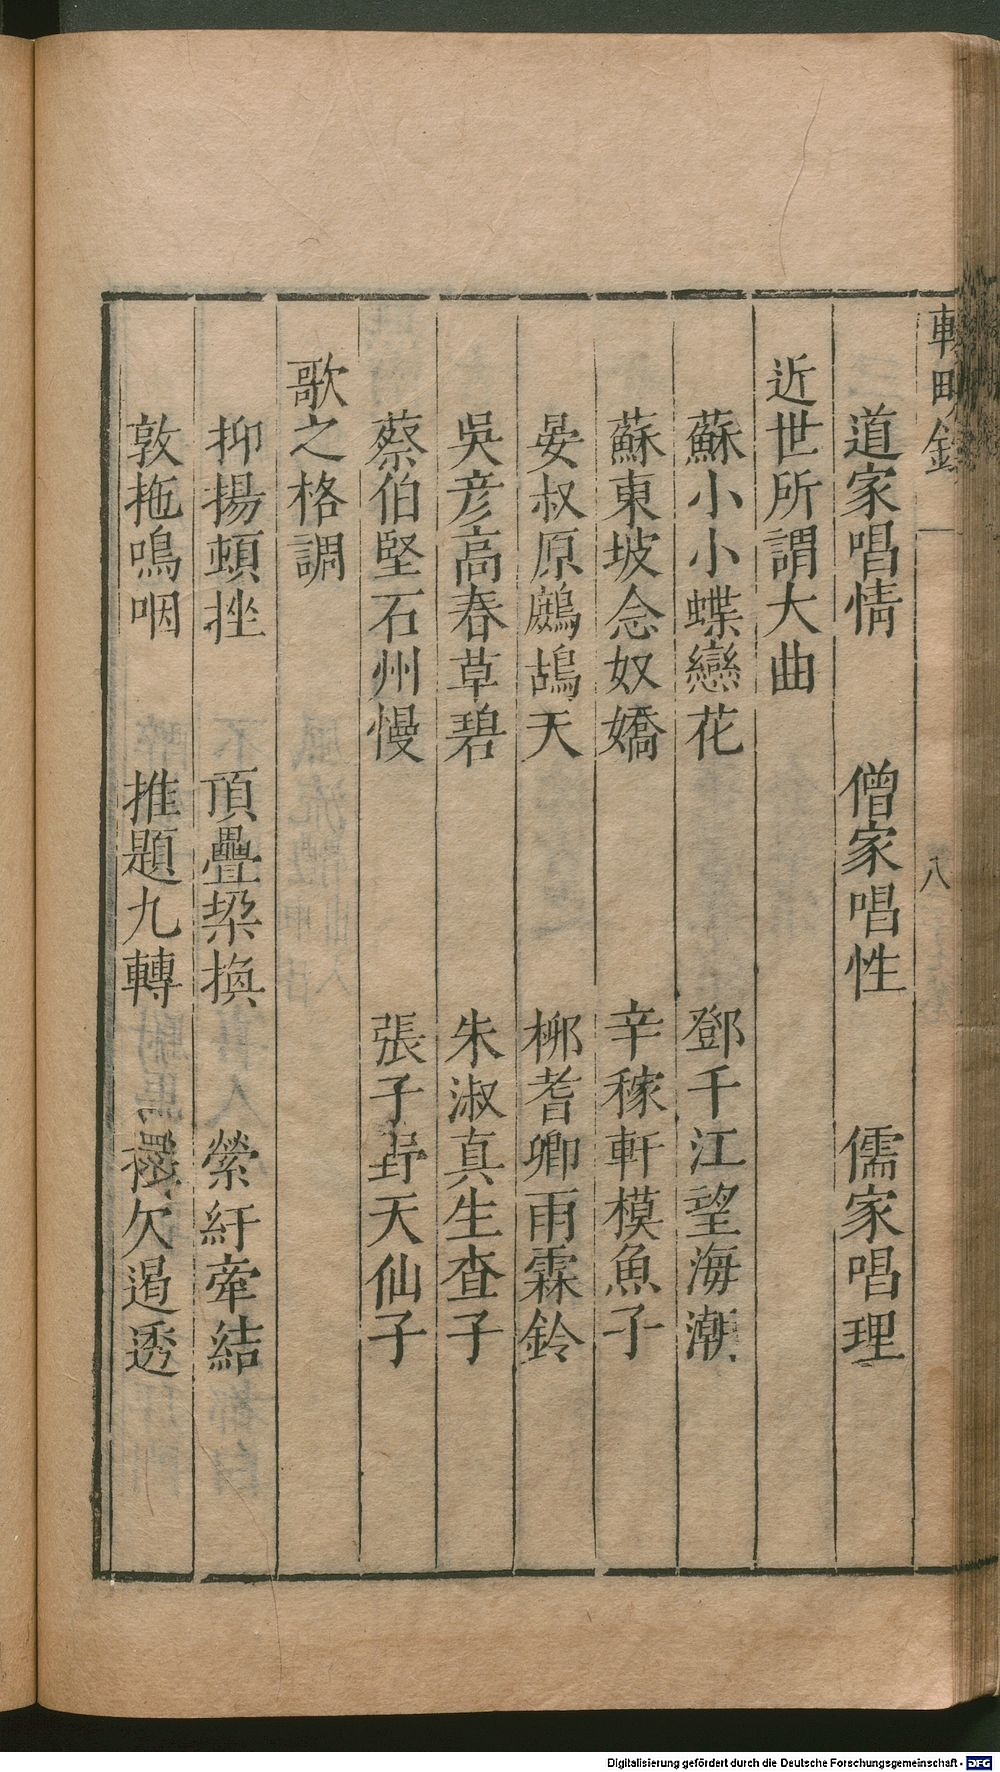 輟畊錄 一 八
道家唱情 僧家唱性 儒家唱理
近世所謂大曲
蘇小小蝶戀花 鄧千江望海潮
蘇東坡念奴嬌 辛稼軒模魚子
晏叔原鷓鴣天 柳耆卿雨霖鈴
吳彥高春草碧 朱淑真生查子
蔡伯堅石州慢 張子野天仙子
歌之格調
抑揚頓挫 頂疊垜換 縈紆牽結
敦拖嗚咽 推題九轉 欠遏透
Digitalisierung gefördert durch die Deutsche Forschungsgemeinschaft - DFG